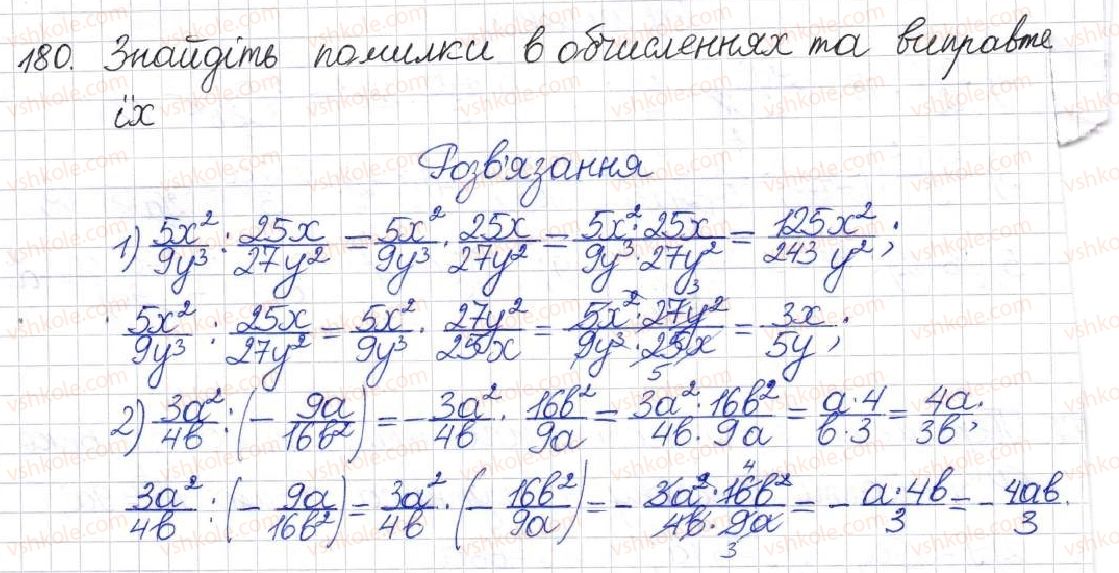 180. Знайдіть помилки в обчисленнях та виправте
їх
Розв'язання
1) 5x²/9y³ : 25x/27y² = 5x²/9y³ · 25x/27y² = 5x²·25x/9y³·27y² = 125x²/243y²;
5x²/9y³ : 25x/27y² = 5x²/9y³ · 27y²/25x = 5x²·27y²/9y³·25x = 3x/5y;
2) 3a²/4b : (- 9a/16b²) = - 3a²/4b · 16b²/9a = 3a²·16b²/4b·9a = a·4/b·3 = 4a/3b;
3a²/4b : (- 9a/16b²) = 3a²/4b · (- 16b²/9a) = - 3a²·16b²/4b·9a = - a·4b/3 = - 4ab/3.